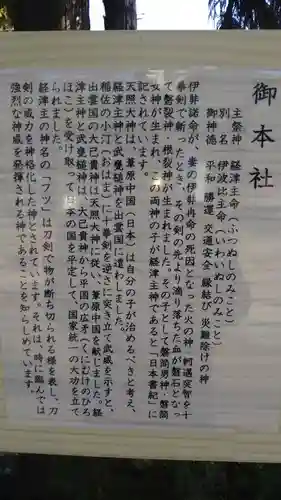 御本社
主祭神 経津主命(ふつぬしのみこと)
別名 伊波比主命(いわいぬしのみこと)
御神徳 平和 勝運 交通安全 縁結び 災難除けの神
伊弉諾命が、妻の伊弉冉命の死因となった火の神 軻遇突智を十
拳剣で斬ったとき、その剣の先より滴り落ちた血が磐石となっ
て磐裂神・根裂神が生まれました。その子として磐筒男神・磐筒
女神が生まれ、この両神の子が経津主神であると「日本書紀」に
記されています。
天照大神は、葦原中国(日本)は自分の子が治めるべきと考え、
経津主神と武甕槌神を出雲国に遣わしました。
稲佐の小汀(おはま)に十拳剣を逆さに突き立て武威を示すと、
出雲国の大己貴神は天照大神に従い、葦原中国を献じました。経
津主神と武甕槌神は、大己貴神から平国の広矛(くにむけのひろ
ほこ)を受け取って日本の国を平定して、国家統一の大功を立て
られました。
経津主の神名の「フツ」は刀剣で物が断ち切られる様を表し、刀
剣の威力を神格化した神とされています。それは、時に臨んでは
強烈な神威を発揮される神であることを知らしめています。